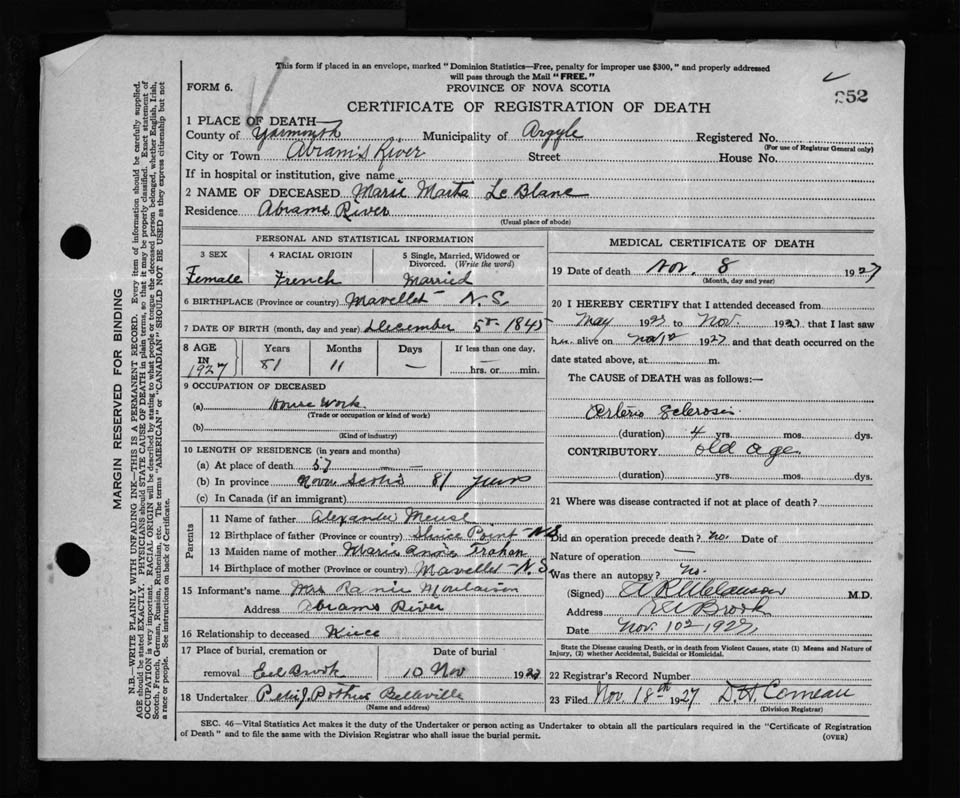 This form if placed in an envelope, marked "Dominion Statistics—Free, penalty for improper use $300," and properly addressed
will pass through the Mail "FREE."
FORM 6.
PROVINCE OF NOVA SCOTIA
352
CERTIFICATE OF REGISTRATION OF DEATH
1 PLACE OF DEATH—
County of Yarmouth Municipality of Argyle Registered No.
(For use of Registrar General only)
City or Town Abrams River Street House No.
If in hospital or institution, give name
2 NAME OF DECEASED Marie Marta Le Blanc
Residence Abrams River
(Usual place of abode)
PERSONAL AND STATISTICAL INFORMATION
3 SEX 4 RACIAL ORIGIN 5 Single, Married, Widowed or Divorced. (Write the word)
Female French Married
6 BIRTHPLACE (Province or country) Mavellet N.S.
7 DATE OF BIRTH (month, day and year) December 5th 1845
8 AGE IN 1927 Years Months Days If less than one day,
81 11 — — hrs. or min.
9 OCCUPATION OF DECEASED
(a) House Work
(Trade or occupation or kind of work)
(b)
(Kind of industry)
10 LENGTH OF RESIDENCE (in years and months)
(a) At place of death 57 — —
(b) In province Nova Scotia 81 years
(c) In Canada (if an immigrant)
Parents
11 Name of father Alexander Meuse
12 Birthplace of father (Province or country) Sluice Point N.S
13 Maiden name of mother Marie Trahan
14 Birthplace of mother (Province or country) Mavellet N.S.
15 Informant's name Mrs
Address Abrams River
16 Relationship to deceased Niece
17 Place of burial, cremation or Date of burial
removal Eel Brook 10 Nov 1927
18 Undertaker Peter J Pothier Belleville
(Name and address)
MEDICAL CERTIFICATE OF DEATH
19 Date of death Nov. 8 1927
(Month, day and year)
20 I HEREBY CERTIFY that I attended deceased from
May 1923 to Nov. 1927 that I last saw
h alive on 1927 and that death occurred on the
date stated above, at m.
The CAUSE of DEATH was as follows:—
Arterio Sclerosis
(duration) 4 yrs. mos. dys.
CONTRIBUTORY old age
(duration) yrs. mos. dys.
21 Where was disease contracted if not at place of death?
Did an operation precede death? no. Date of
Nature of operation —
Was there an autopsy? no.
(Signed) M.D.
Address Eel Brook
Date Nov. 10th 1927
State the Disease causing Death, or in death from Violent Causes, state (1) Means and Nature of
Injury, (2) whether Accidental, Suicidal or Homicidal.
22 Registrar's Record Number
23 Filed Nov. 18th 1927 D.H Comeau
(Division Registrar)
SEC. 46—Vital Statistics Act makes it the duty of the Undertaker or person acting as Undertaker to obtain all the particulars required in the "Certificate of Registration
of Death" and to file the same with the Division Registrar who shall issue the burial permit. (OVER)
MARGIN RESERVED FOR BINDING
N.B.—WRITE PLAINLY WITH UNFADING INK—THIS IS A PERMANENT RECORD. Every item of information should be carefully supplied.
AGE should be stated EXACTLY. PHYSICIANS should STATE CAUSE OF DEATH in plain terms, so that it may be properly classified. Exact statement of
OCCUPATION is very important. RACIAL ORIGIN will be described by stating to what people or tongue the deceased person belonged, whether English, Irish,
Scotch, French, German, Russian, Ruthenian, etc. The terms "AMERICAN" or "CANADIAN" SHOULD NOT BE USED as they express citizenship but not
a race or people. See instructions on back of Certificate.